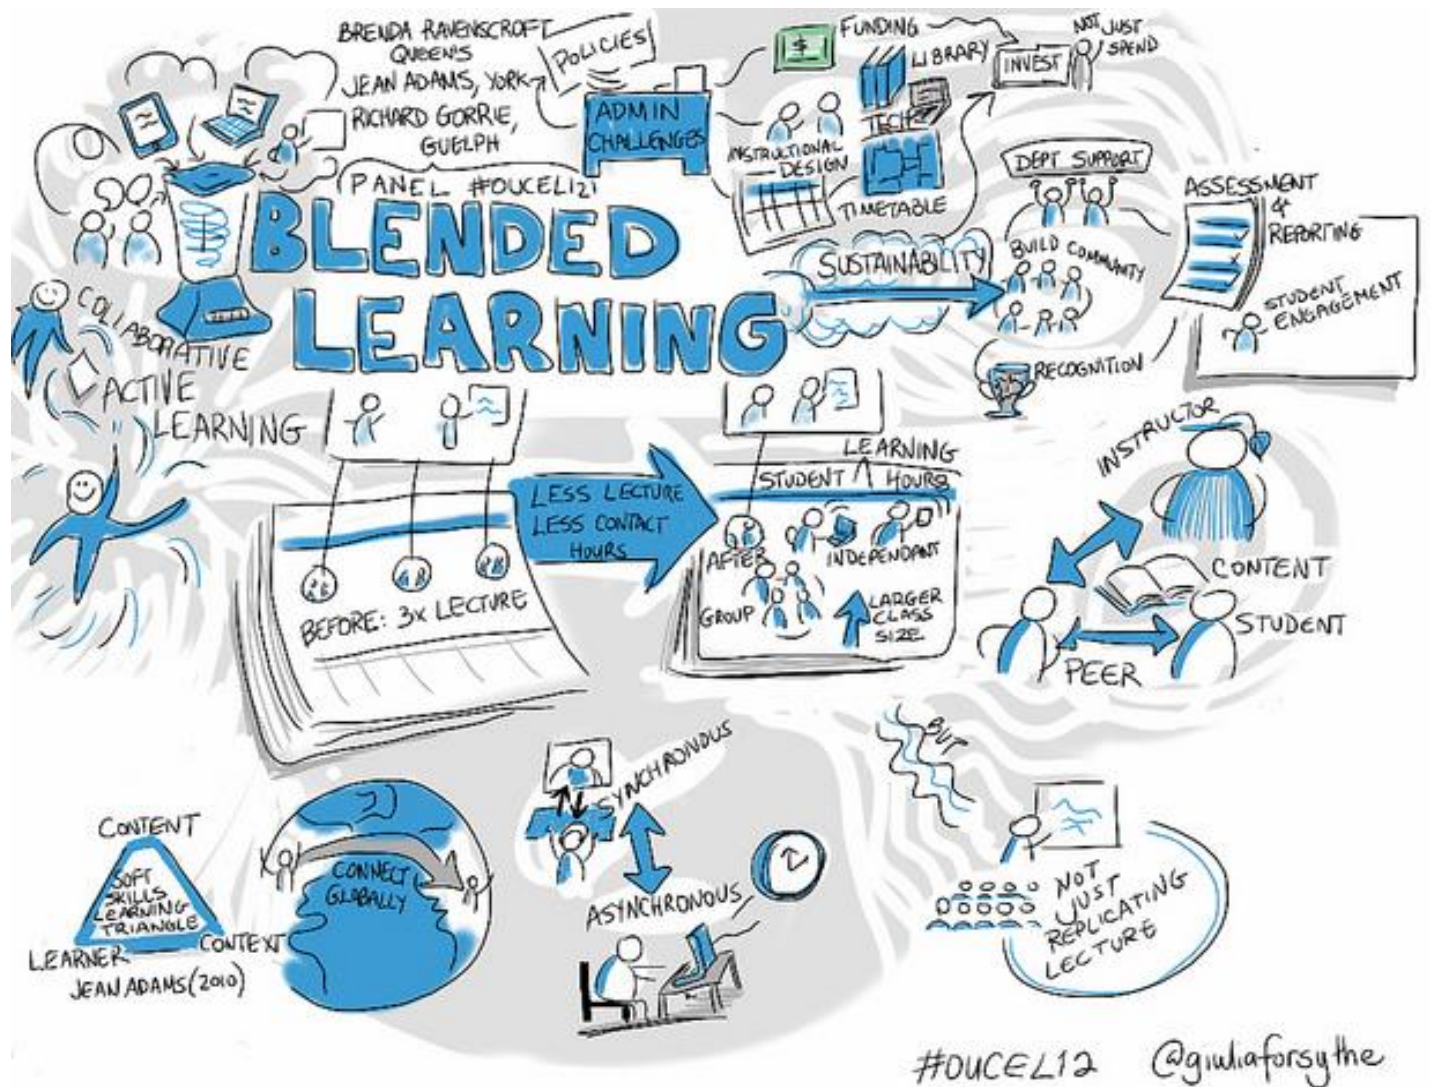 BRENDA RAVENSCROFT
QUEENS
JEAN ADAMS, YORK
RICHARD GORRIE,
GUELPH
(PANEL #OUCEL12)
BLENDED
LEARNING
POLICIES
ADMIN
CHALLENGES
$
FUNDING
LIBRARY
TECH
INSTRUCTIONAL
DESIGN
TIMETABLE
INVEST
NOT JUST
SPEND
SUSTAINABILITY
DEPT SUPPORT
BUILD COMMUNITY
RECOGNITION
ASSESSMENT
&
REPORTING
STUDENT
ENGAGEMENT
COLLABORATIVE
ACTIVE
LEARNING
BEFORE: 3X LECTURE
LESS LECTURE
LESS CONTACT
HOURS
LEARNING
STUDENT ^ HOURS
AFTER
INDEPENDANT
GROUP
LARGER
CLASS
SIZE
INSTRUCTOR
CONTENT
STUDENT
PEER
CONTENT
SOFT
SKILLS
LEARNING
TRIANGLE
LEARNER
CONTEXT
JEAN ADAMS (2010)
CONNECT
GLOBALLY
SYNCHRONOUS
ASYNCHRONOUS
BUT
NOT
JUST
REPLICATING
LECTURE
#OUCEL12 @giuliaforsythe